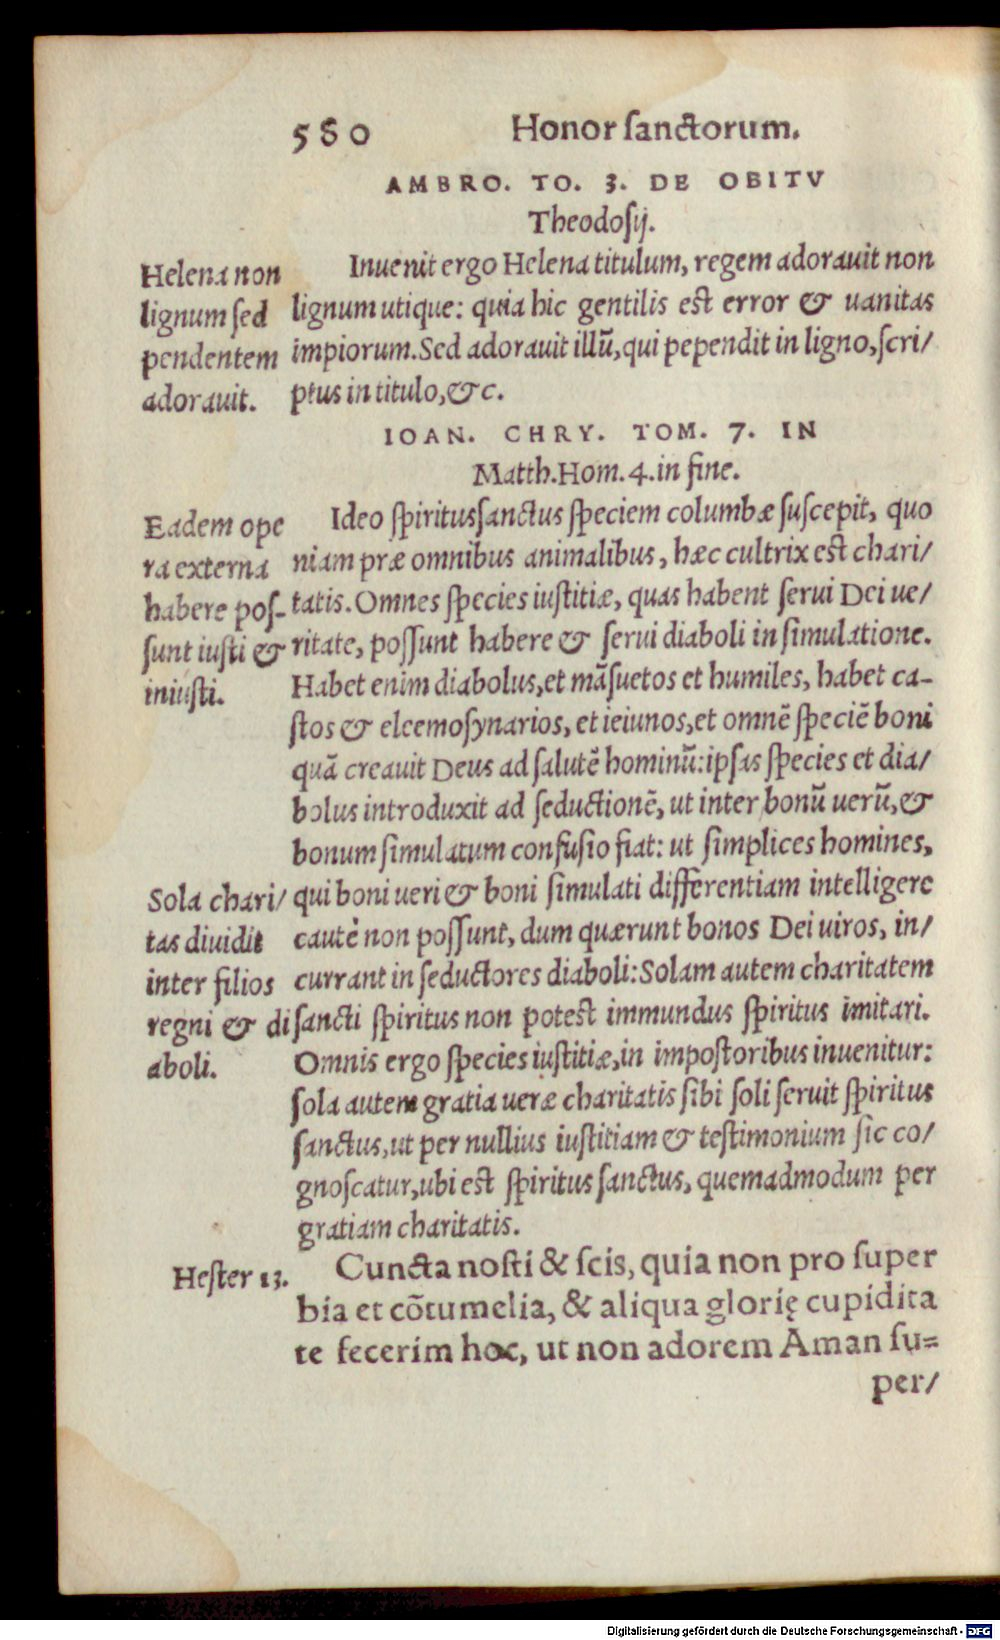 580 Honor sanctorum.
AMBRO. TO. 3. DE OBITV
Theodosij.
Helena non
lignum sed
pendentem
adorauit.
Inuenit ergo Helena titulum, regem adorauit non
lignum utique: quia hic gentilis est error & uanitas
impiorum. Sed adorauit illũ, qui pependit in ligno, scri/
ptus in titulo, &c.
IOAN. CHRY. TOM. 7. IN
Matth. Hom. 4. in fine.
Eadem ope
ra externa
habere pos-
sunt iusti &
iniusti.
Ideo spiritussanctus speciem columbæ suscepit, quo
niam præ omnibus animalibus, hæc cultrix est chari/
tatis. Omnes species iustitiæ, quas habent serui Dei ue/
ritate, possunt habere & serui diaboli in simulatione.
Habet enim diabolus, et mãsuetos et humiles, habet ca-
stos & eleemosynarios, et ieiunos, et omnẽ speciẽ boni
quã creauit Deus ad salutẽ hominũ: ipsas species et dia/
bolus introduxit ad seductionẽ, ut inter bonũ uerũ, &
bonum simulatum confusio fiat: ut simplices homines,
Sola chari/
tas diuidit
inter filios
regni & di
aboli.
qui boni ueri & boni simulati differentiam intelligere
cautè non possunt, dum quærunt bonos Dei uiros, in/
currant in seductores diaboli: Solam autem charitatem
sancti spiritus non potest immundus spiritus imitari.
Omnis ergo species iustitiæ, in impostoribus inuenitur:
sola autem gratia ueræ charitatis sibi soli seruit spiritus
sanctus, ut per nullius iustitiam & testimonium sic co/
gnoscatur, ubi est spiritus sanctus, quemadmodum per
gratiam charitatis.
Hester 13.
Cuncta nosti & scis, quia non pro super
bia et cõtumelia, & aliqua glorię cupidita
te fecerim hoc, ut non adorem Aman su=
per/
Digitalisierung gefördert durch die Deutsche Forschungsgemeinschaft - DFG